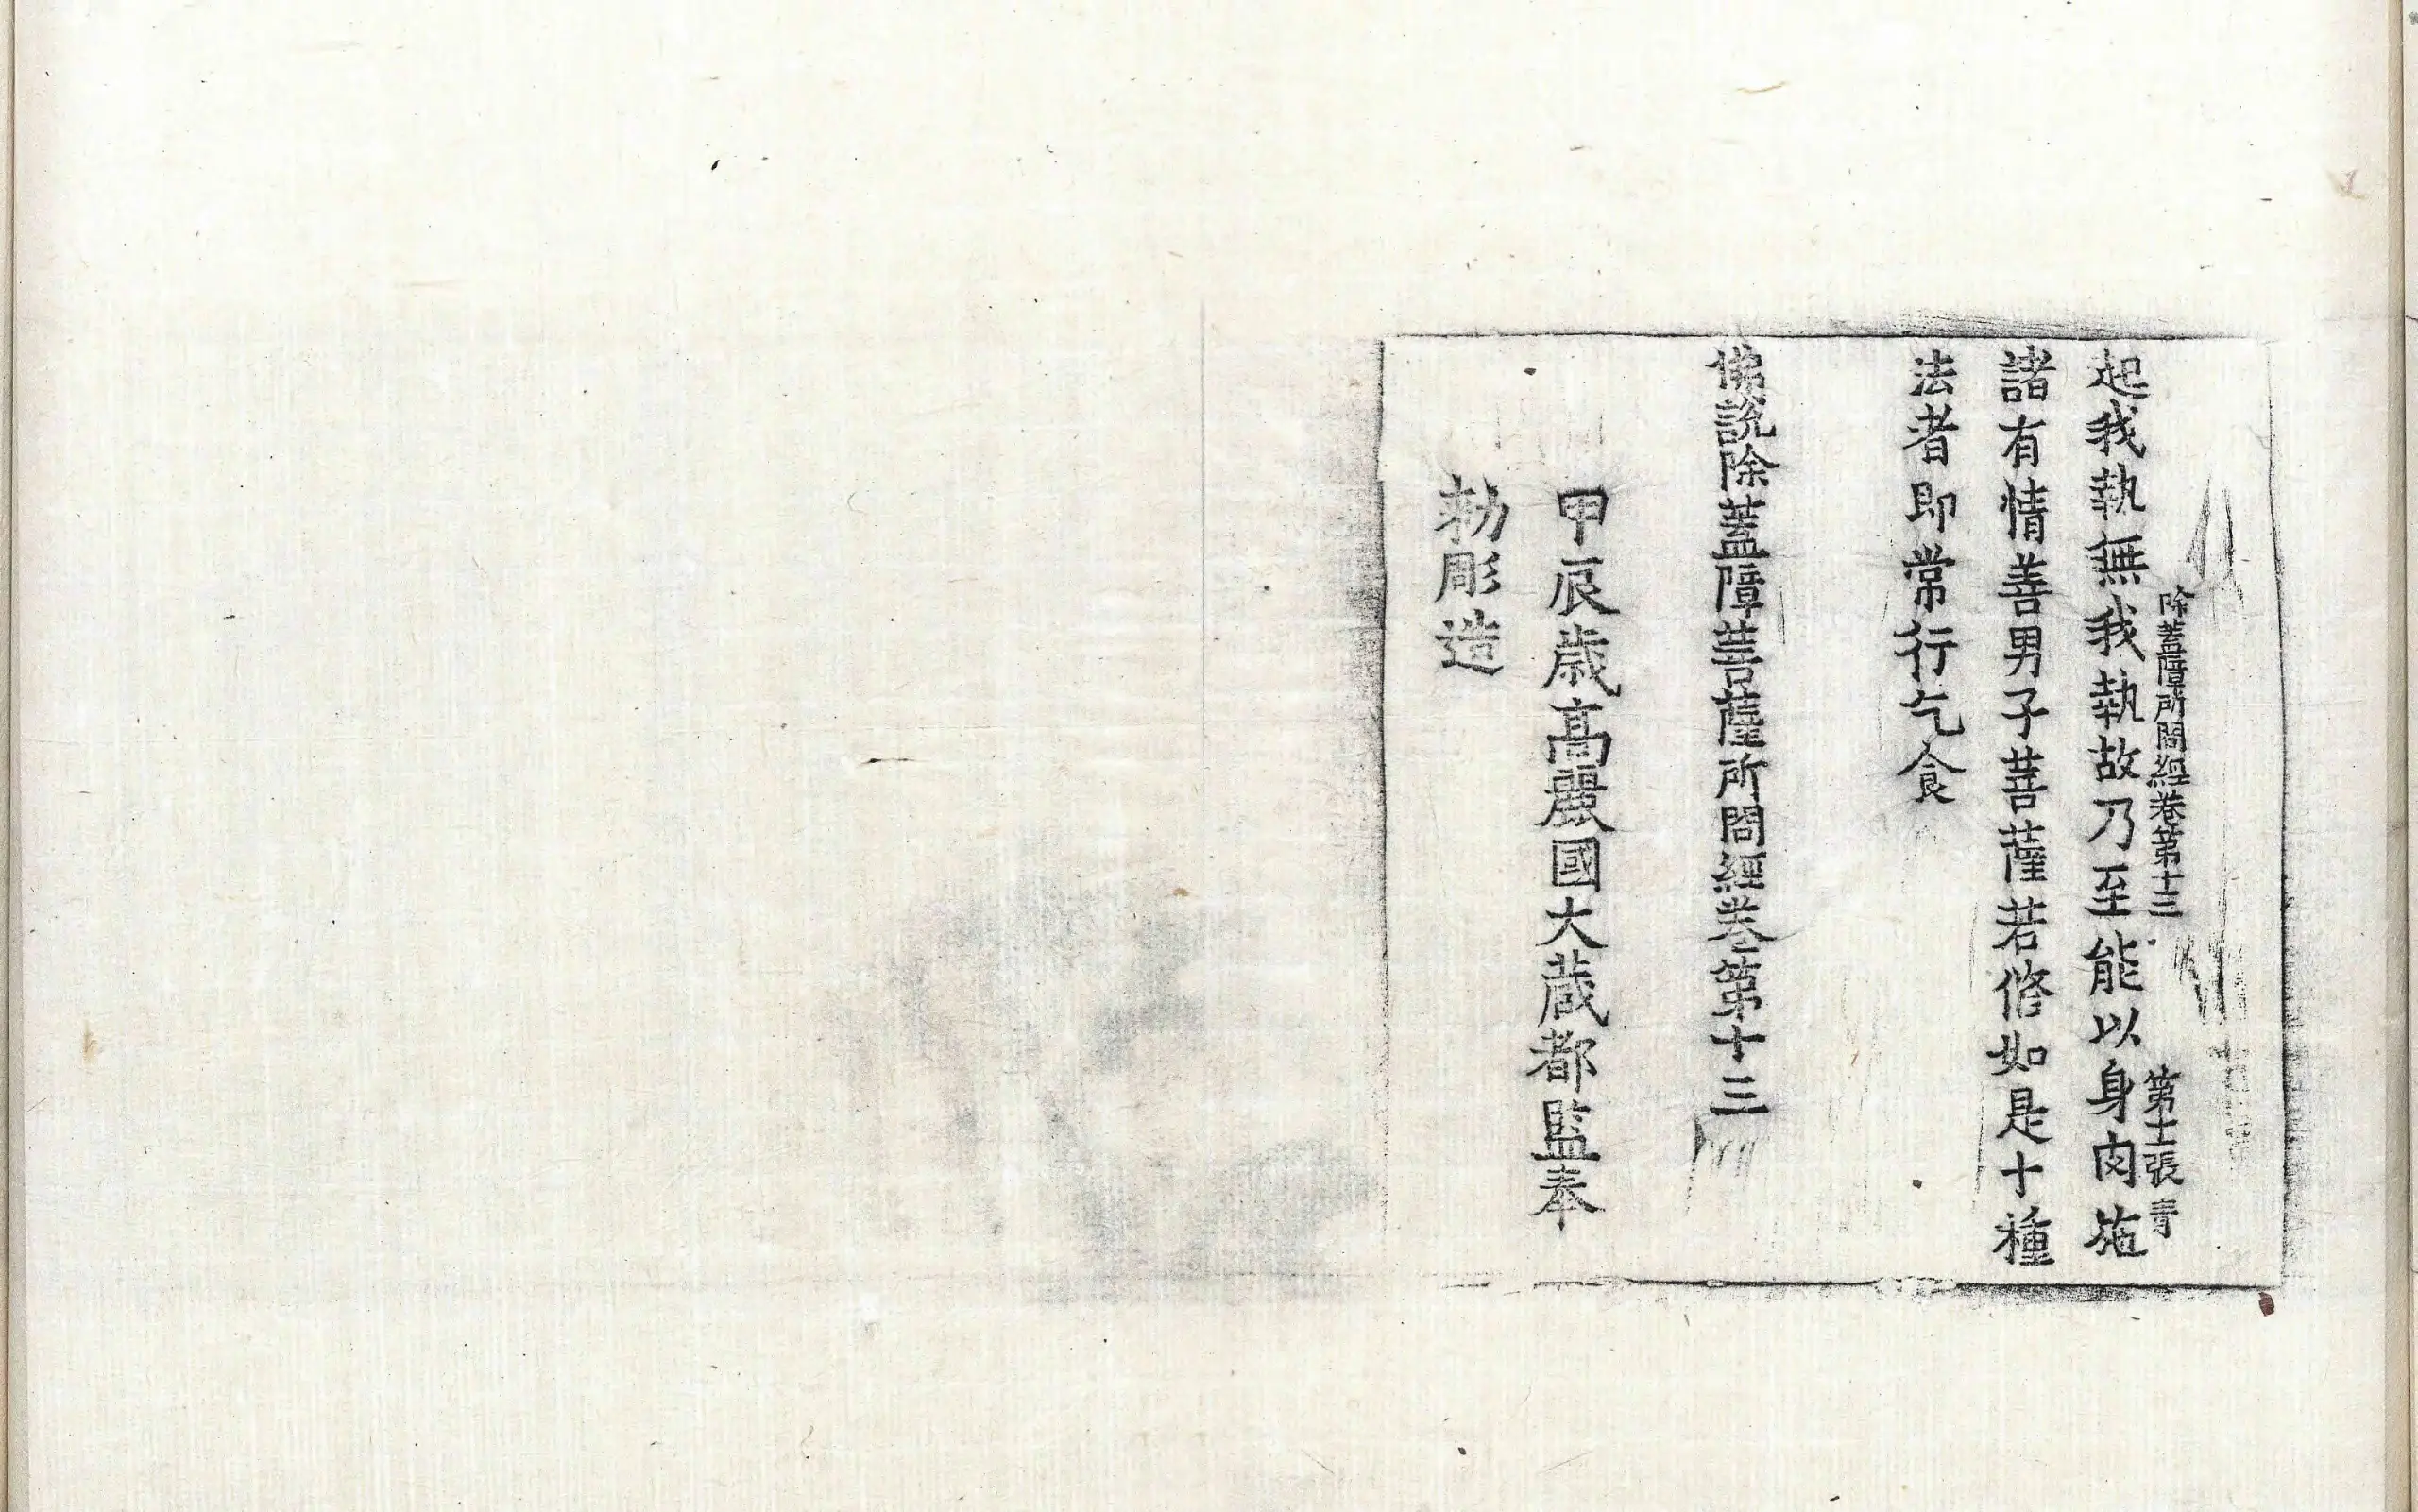 除蓋障所問經卷第十三 第十二張 青
起我執無我執故乃至能以身肉施
諸有情善男子菩薩若修如是十種
法者即常行乞食
佛說除蓋障菩薩所問經卷第十三
甲辰歲高麗國大藏都監奉
勅彫造